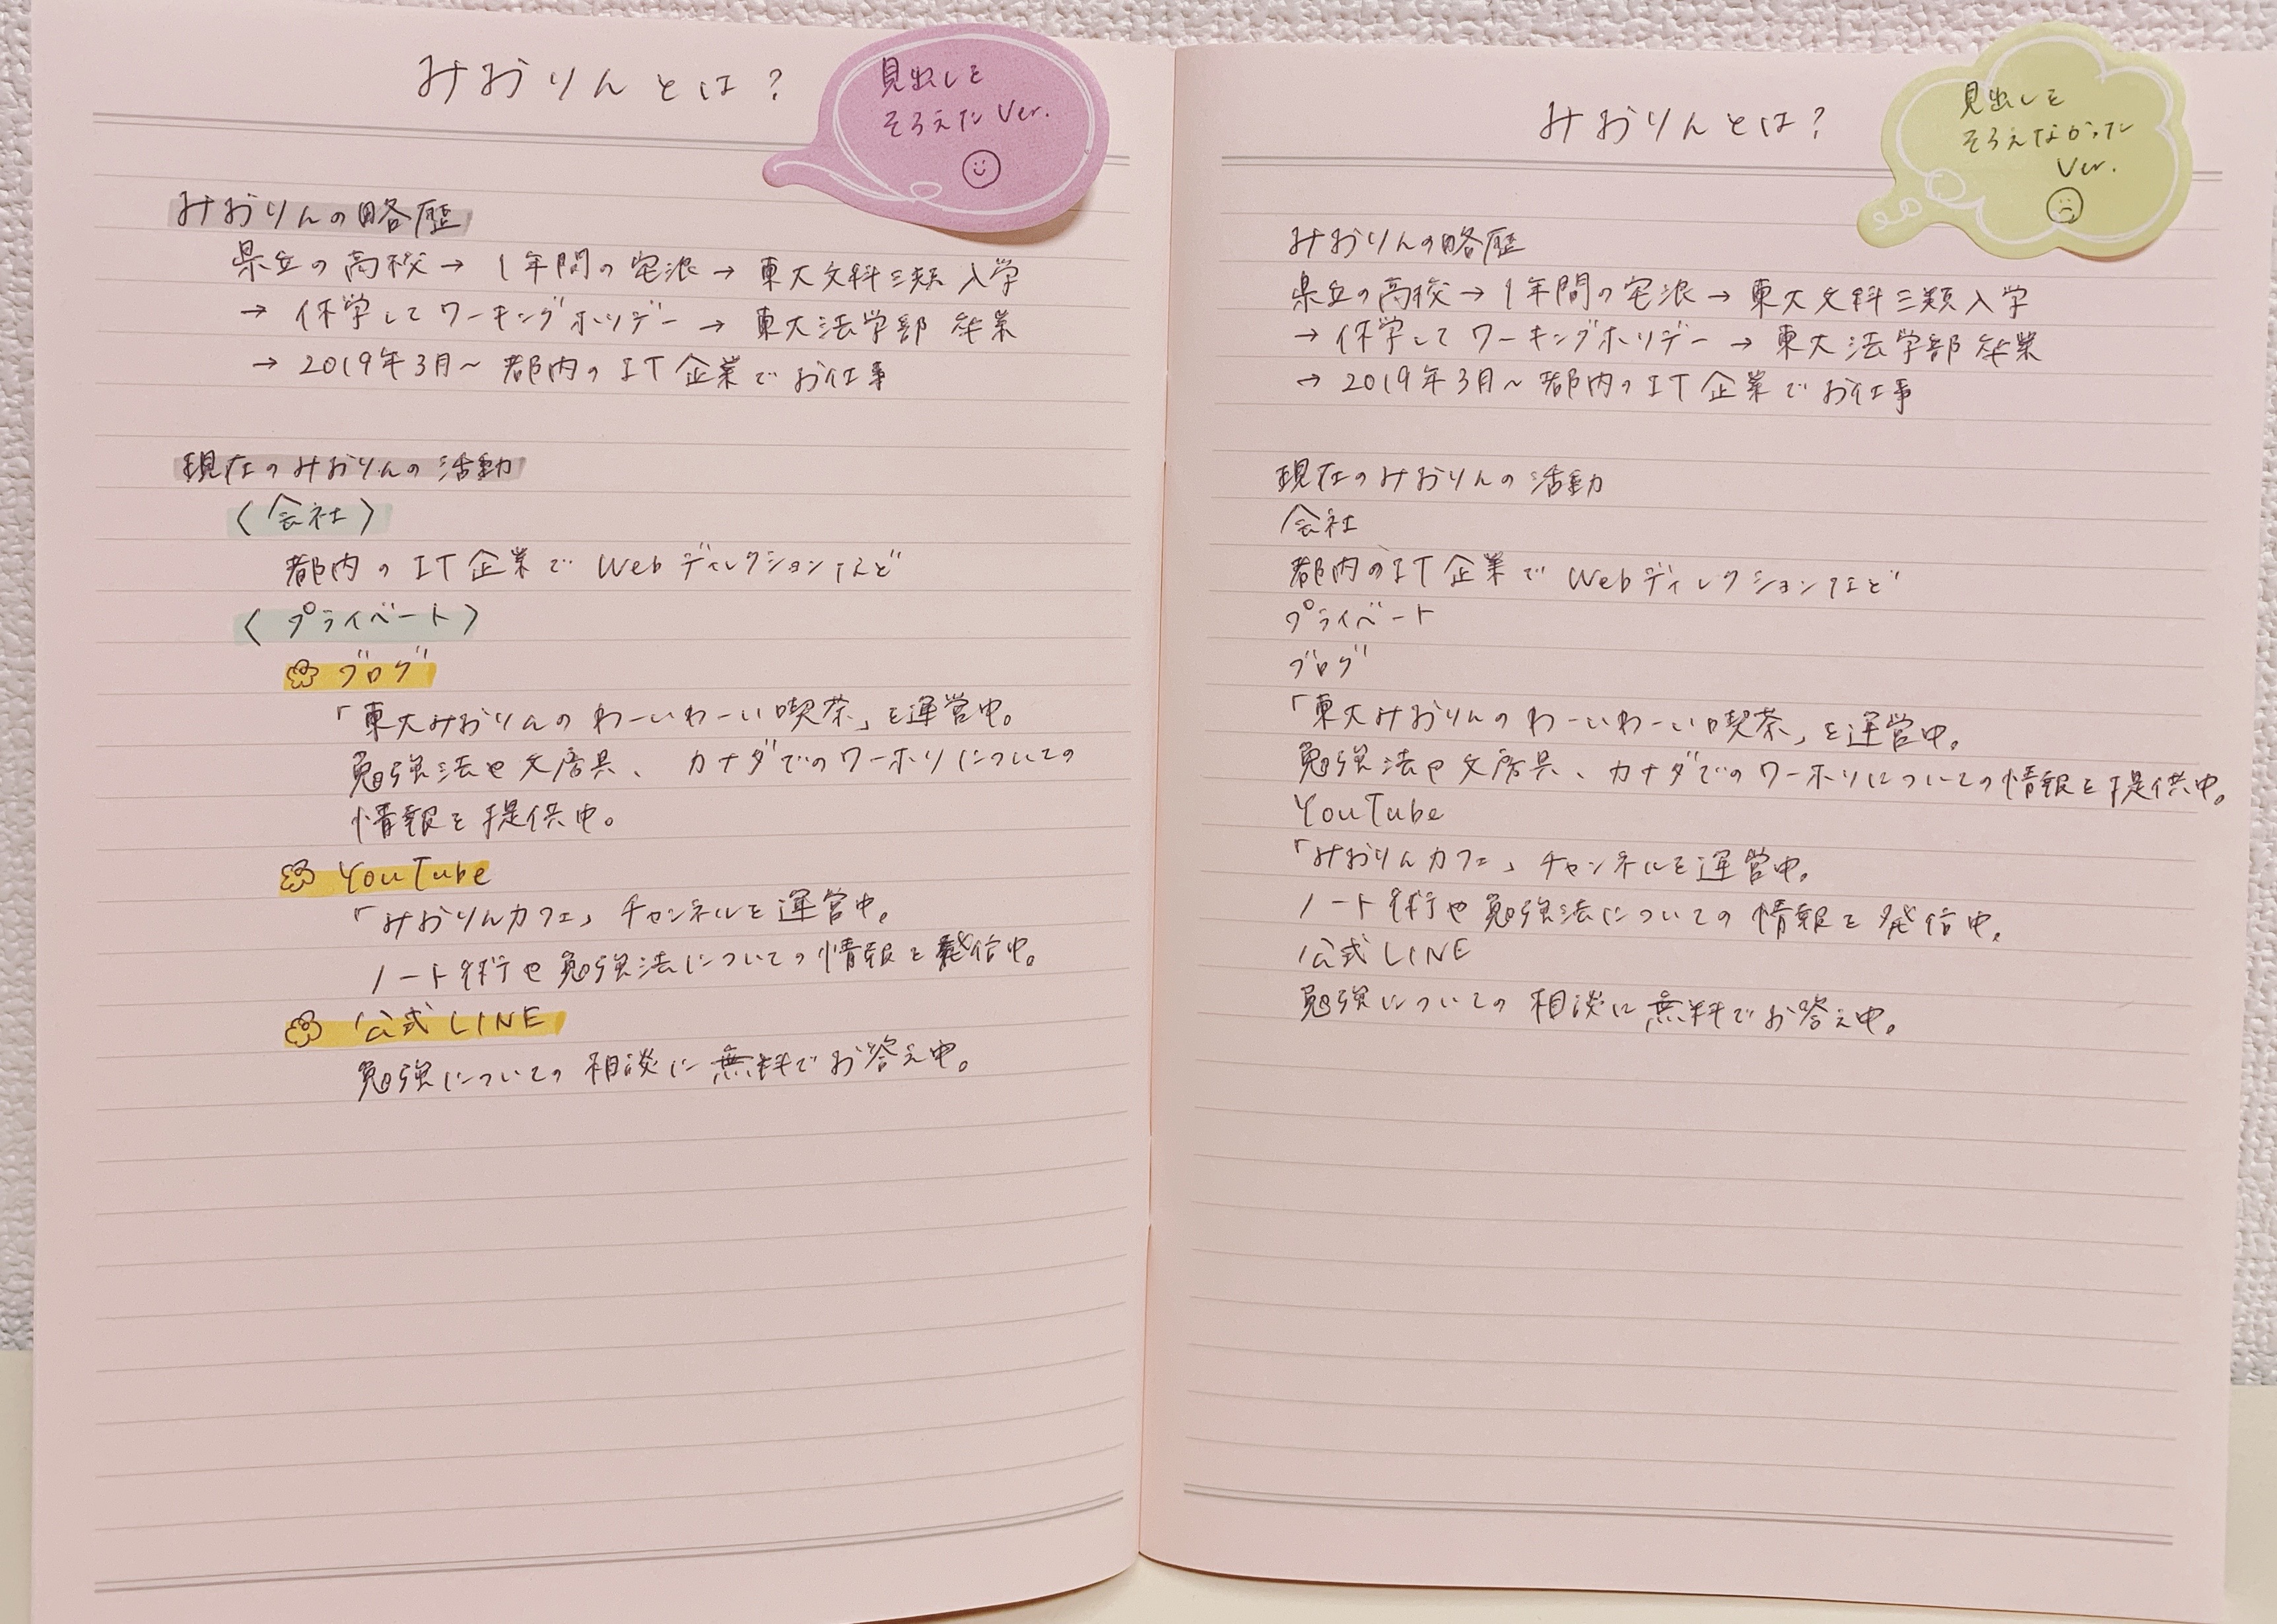 みおりんとは？
見出しを
そろえた Ver.
みおりんの略歴
県立の高校→ 1年間の宅浪→ 東大文科三類 入学
→ 休学してワーキングホリデー → 東大法学部 卒業
→ 2019年3月～ 都内のIT企業でお仕事
現在のみおりんの活動
〈会社〉
都内のIT企業で Webディレクションなど
〈プライベート〉
ブログ
「東大みおりんのわーいわーい喫茶」を運営中。
勉強法や文房具、カナダでのワーホリについての
情報を提供中。
YouTube
「みおりんカフェ」チャンネルを運営中。
ノート術や勉強法についての情報を発信中。
公式LINE
勉強についての相談に無料でお答え中。
みおりんとは？
見出しを
そろえなかった
Ver.
みおりんの略歴
県立の高校→1年間の宅浪→東大文科三類入学
→ 休学してワーキングホリデー → 東大法学部 卒業
→ 2019年3月～ 都内のIT企業でお仕事
現在のみおりんの活動
会社
都内のIT企業で Webディレクションなど
プライベート
ブログ
「東大みおりんのわーいわーい喫茶」を運営中。
勉強法や文房具、カナダでのワーホリについての情報を提供中。
YouTube
「みおりんカフェ」チャンネルを運営中。
ノート術や勉強法についての情報を発信中。
公式LINE
勉強についての相談に無料でお答え中。